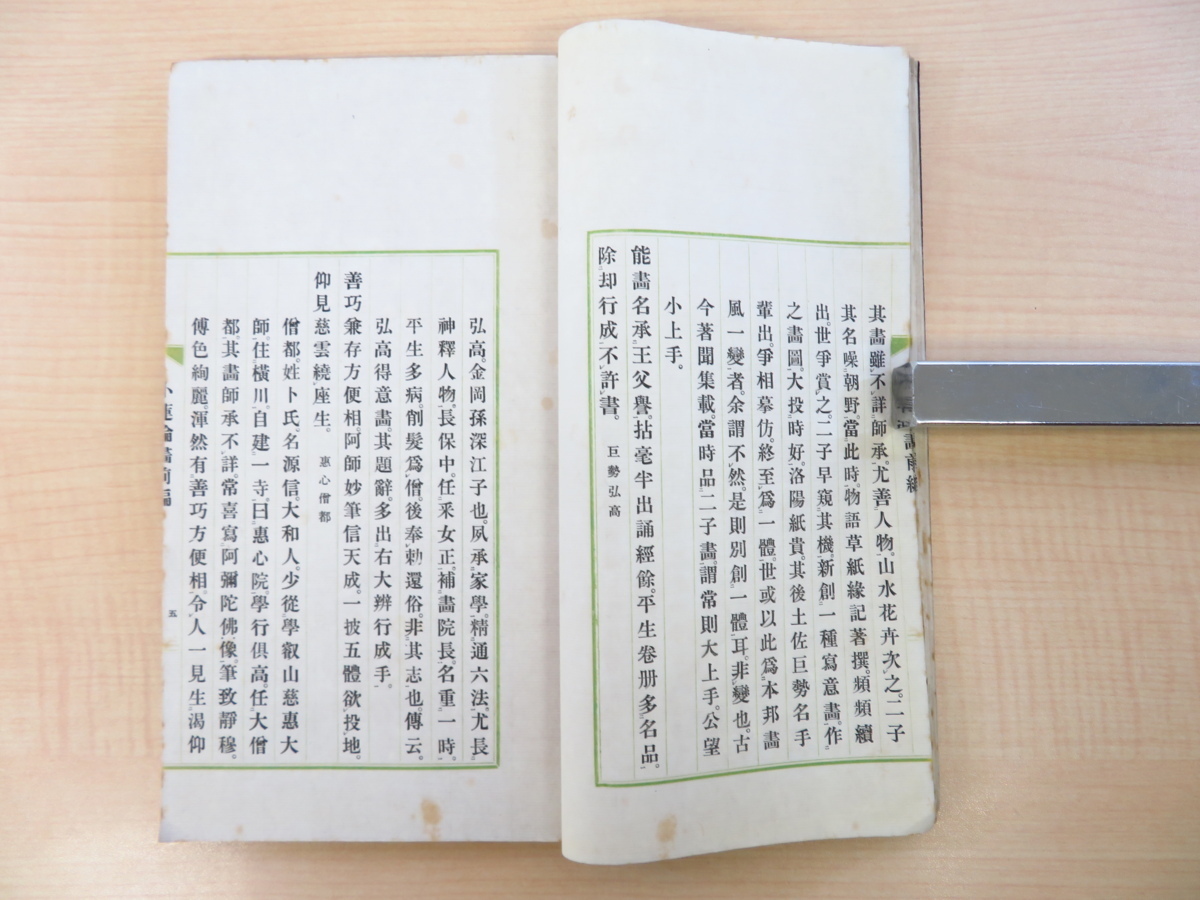 其畫雖不詳師承尤善人物山水花卉次之二子
其名噪朝野當此時物語草紙緣記著撰頻頻續
出世爭賞之二子早窺其機新創一種寫意畫作
之畫圖大投時好洛陽紙貴其後土佐巨勢名手
輩出爭相摹仿終至爲一體世或以此爲本邦畫
風一變者余謂不然是則別創一體耳非變也古
今著聞集載當時品二子畫謂常則大上手公望
小上手。
能畫名承王父譽。拈毫半出誦經餘。平生卷册多名品。
除却行成不許書。 巨勢弘高
弘高。金岡孫深江子也。夙承家學。精通六法。尤長
神釋人物。長保中。任釆女正。補畫院長。名重一時。
平生多病。削髮爲僧。後奉勅還俗。非其志也。傳云。
弘高得意畫。其題辭。多出右大辨行成手。
善巧兼存方便相。阿師妙筆信天成。一披五體欲投地。
仰見慈雲繞座生。 惠心僧都
僧都。姓卜氏。名源信。大和人。少從學叡山慈惠大
師。住橫川。自建一寺。曰惠心院。學行俱高。任大僧
都。其畫師承不詳。常喜寫阿彌陀佛像。筆致靜穆。
傅色絢麗。渾然有善巧方便相。令人一見生渴仰
五